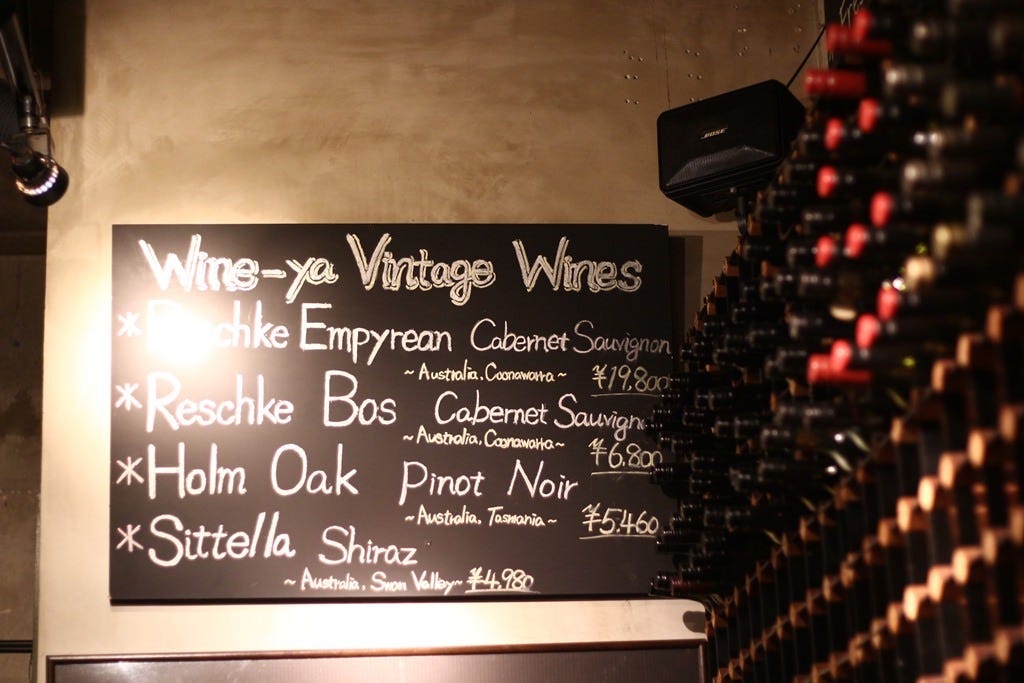 Wine-ya Vintage Wines
* Reschke Empyrean Cabernet Sauvignon
~ Australia, Coonawarra ~ ¥19.800
* Reschke Bos Cabernet Sauvign
~ Australia, Coonawarra ~ ¥6.800
* Holm Oak Pinot Noir
~ Australia, Tasmania ~ ¥5.460
* Sittella Shiraz
~ Australia, Swan Valley ~ ¥4.980
BOSE